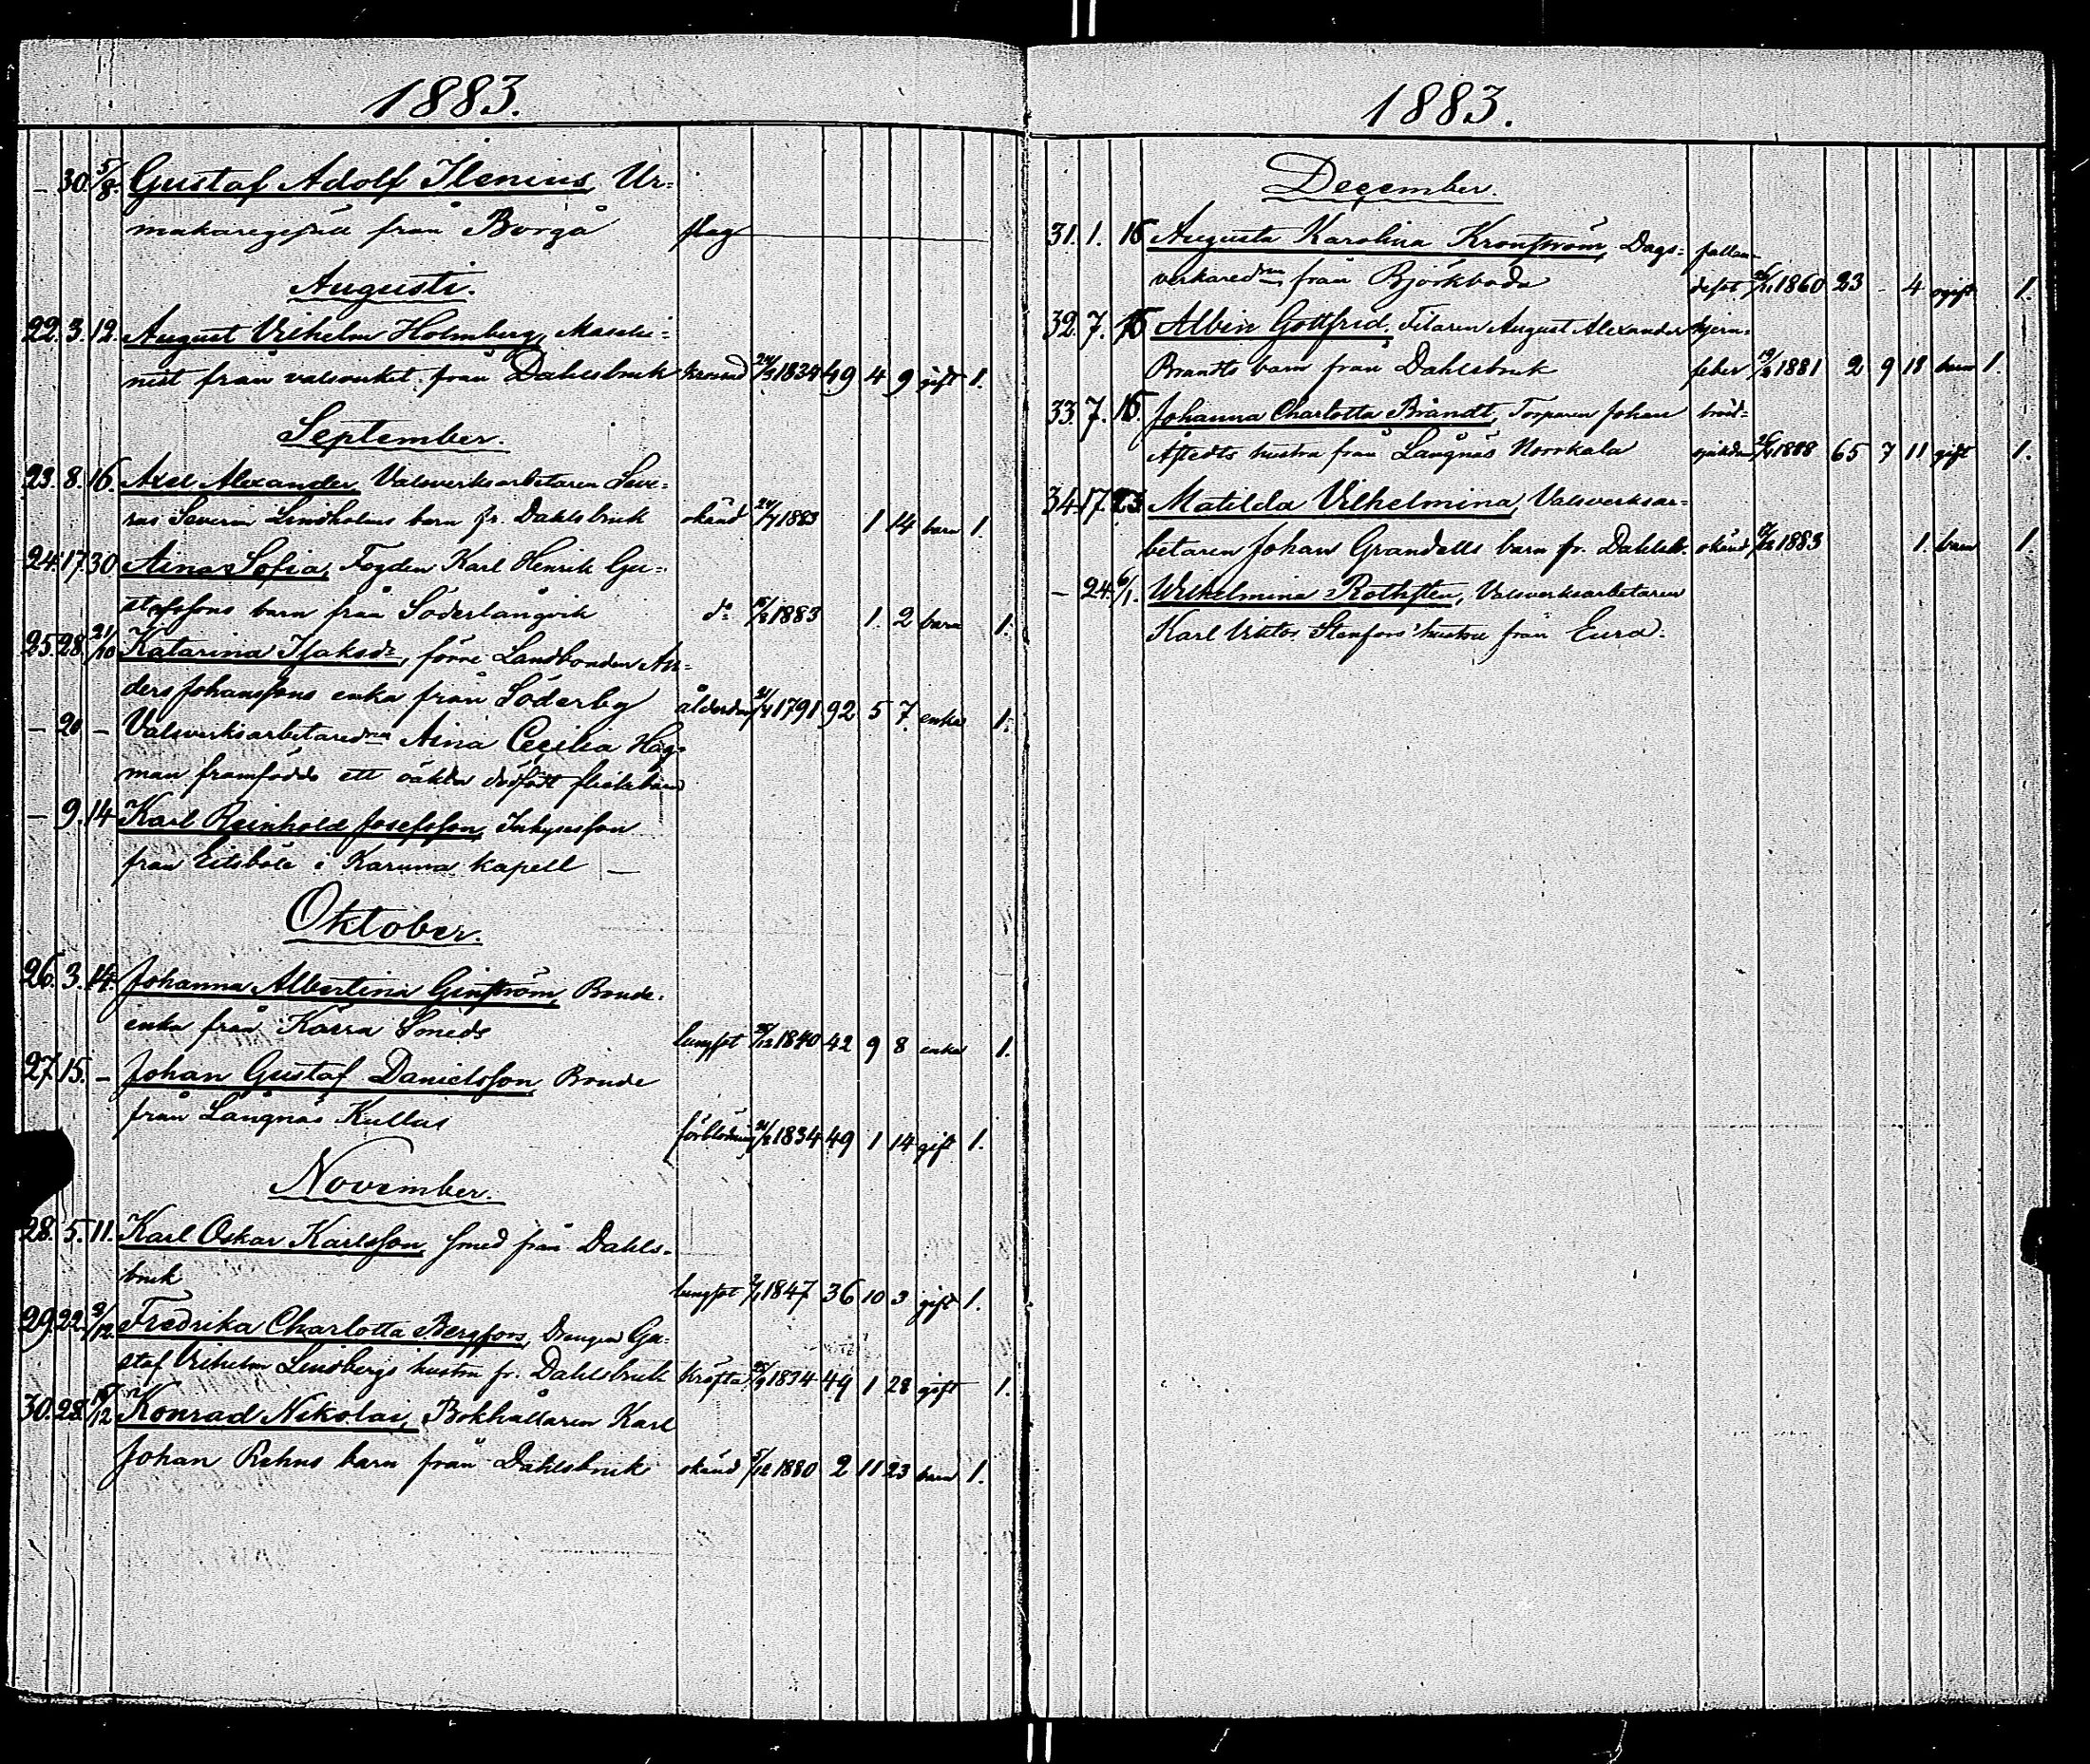 1883.
— 30. 5/8. Gustaf Adolf Ilenius, Ur=
makaregesäll från Borgå slag
Augusti.
22. 3. 12. August Vilhelm Holmberg, Maschi=
nist från valsverket från Dahlsbruk krossad 24/3 1834 49 4 9 gift 1.
September.
23. 8. 16. Axel Alexander, Valsverksarbetaren Seve=
rus Severin Lindholms barn fr. Dahlsbruk okänd 24/7 1883 1 14 barn 1.
24. 17. 30. Aina Sofia, Fogden Karl Henrik Gu=
stafssons barn från Söderlångvik do 15/8 1883 1. 2 barn 1.
25. 28. 21/10 Katarina Isaksdr, förre Landbonden An=
ders Johanssons enka från Söderby ålderdom 21/4 1791 92 5 7 enka 1.
— 20 — Valsverksarbetaredrn Aina Cecilia Häg=
man framfödde ett oäkta dödfödt flickebarn
— 9. 14 Karl Reinhold Josefsson, Inhysesson
från Eitsböle i Karuna kapell —
Oktober.
26. 3. 14. Johanna Albertina Ginström, Bonde=
enka från Kärra Smeds lungsot 25/12 1840 42 9 8 enka 1.
27. 15. — Johan Gustaf Danielsson, Bonde
från Långnäs Kullas förblödning 1834 49 1 14 gift 1.
November.
28. 5. 11. Karl Oskar Karlsson, Smed från Dahls=
bruk lungsot 2/1 1847 36 10 3 gift 1.
29. 22. 2/12. Fredrika Charlotta Bergfors, Drengen Gu=
staf Vilhelm Lindbergs hustru fr. Dahlsbruk kräfta 25/9 1834 49 1 28 gift 1.
30. 28. 16/12 Konrad Nikolai, Bokhållaren Karl
Johan Rehns barn från Dahlsbruk okänd 5/12 1880 2 11 23 barn 1.
1883.
December.
31. 1. 16 Augusta Karolina Kronström, Dags= fallan=
verkaredrn från Björkboda desot 1860 23 - 4 ogift 1.
32. 7. 16 Albin Gottfrid, Filaren August Alexander hjern=
Brandts barn från Dahlsbruk feber 19/2 1881 2 9 18 barn 1.
33. 7. 16. Johanna Charlotta Brandt, Torparen Johan bröst=
Åstedts hustru från Långnäs Norrkala sjukdom 1818 65 7 11 gift 1.
34. 17. 23 Matilda Vilhelmina, Valsverksar=
betaren Johan Grandells barn fr. Dahlsb. okänd 1883 1. barn 1.
— 24. 6/1. Wilhelmina Rothsten, Valsverksarbetaren
Karl Viktor Stenfors' hustru från Eura.